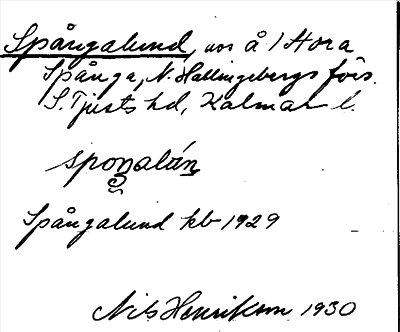 Spångalund, vos å 1 Stora
Spånga, N. Hallingebergs förs.
S. Tjusts hd, Kalmar l.
spoŋalún
Spångalund kb 1929
Nils Henrikson 1930